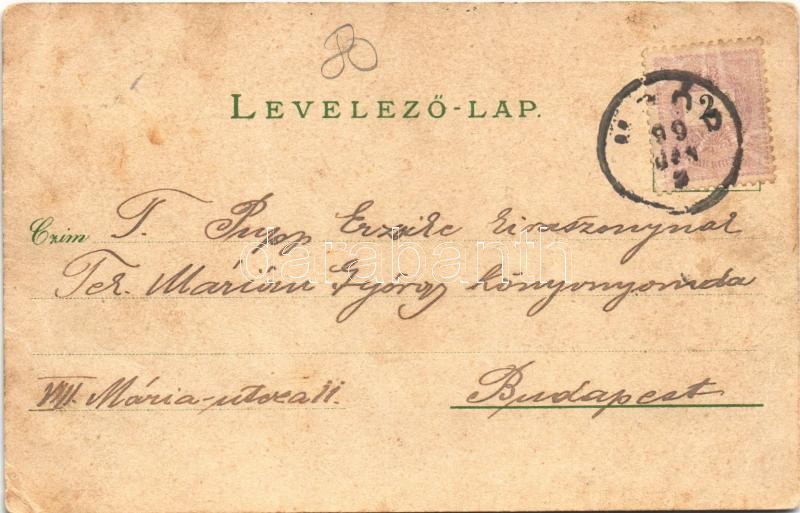 LEVELEZŐ-LAP.
99
JAN
Czim T. Papp Erzsike kisaszonynak
Tek. Márián György könyvnyomda
VIII. Mária-utcza 11.
Budapest
darabanth